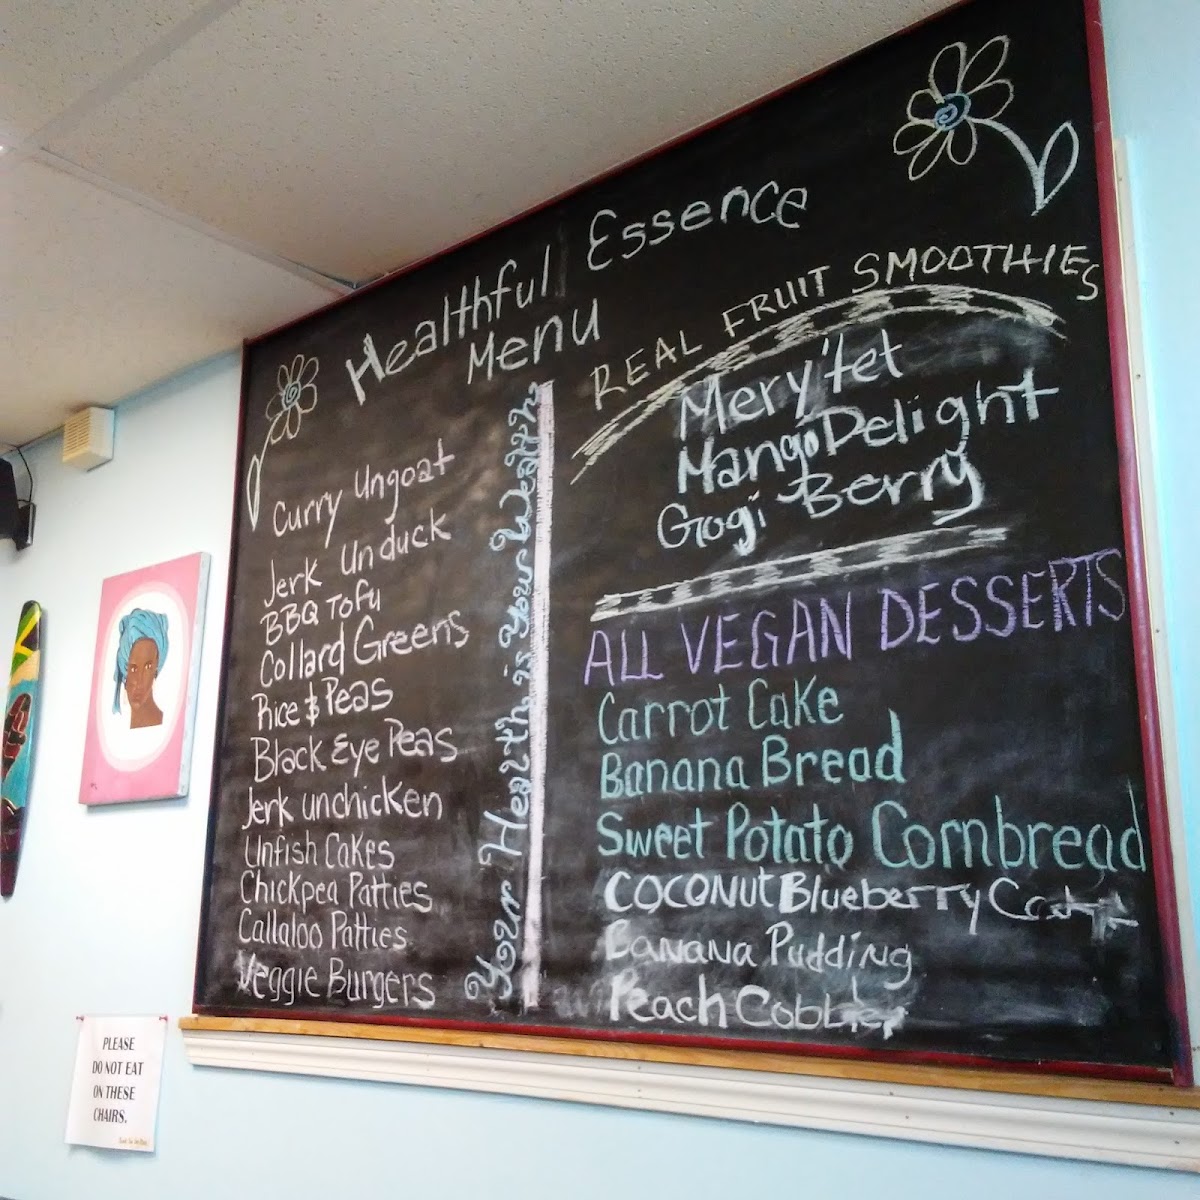 Healthful Essence
Menu
Curry Ungoat
Jerk Unduck
BBQ Tofu
Collard Greens
Rice & Peas
Black Eye Peas
Jerk unchicken
Unfish Cakes
Chickpea Patties
Callaloo Patties
Veggie Burgers
Your Health is Your Wealth
REAL FRUIT SMOOTHIES
Mery'tet
Mango Delight
Gogi Berry
ALL VEGAN DESSERTS
Carrot Cake
Banana Bread
Sweet Potato Cornbread
COCONUT Blueberry
Banana Pudding
Peach Cobbler
PLEASE
DO NOT EAT
ON THESE
CHAIRS.